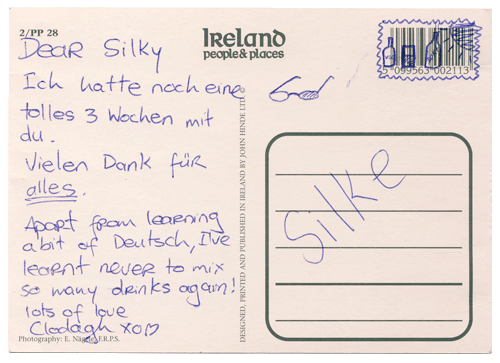 2/PP 28
Ireland
people & places
Dear Silky
Ich hatte noch eine
tolles 3 Wochen mit
du.
Vielen Dank für
alles.
Apart from learning
a bit of Deutsch, I've
learnt never to mix
so many drinks again!
lots of love
Clodagh XO♡
Photography: E. F.R.P.S.
DESIGNED, PRINTED AND PUBLISHED IN IRELAND BY JOHN HINDE LTD.
5 099563 002113
Silke